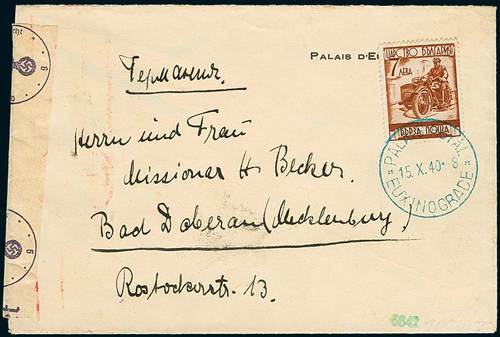 PALAIS D'E
7 ЛЕВА
ЦАРСТВО БЪЛГАРИЯ
БЪРЗА ПОЩА
PALA
AL
15.X.40-8
EUXINOGRADE
Германия.
Herrn und Frau
Missionar H. Becker.
Bad Doberan (Mecklenburg)
Rostockerstr. 13.
5647